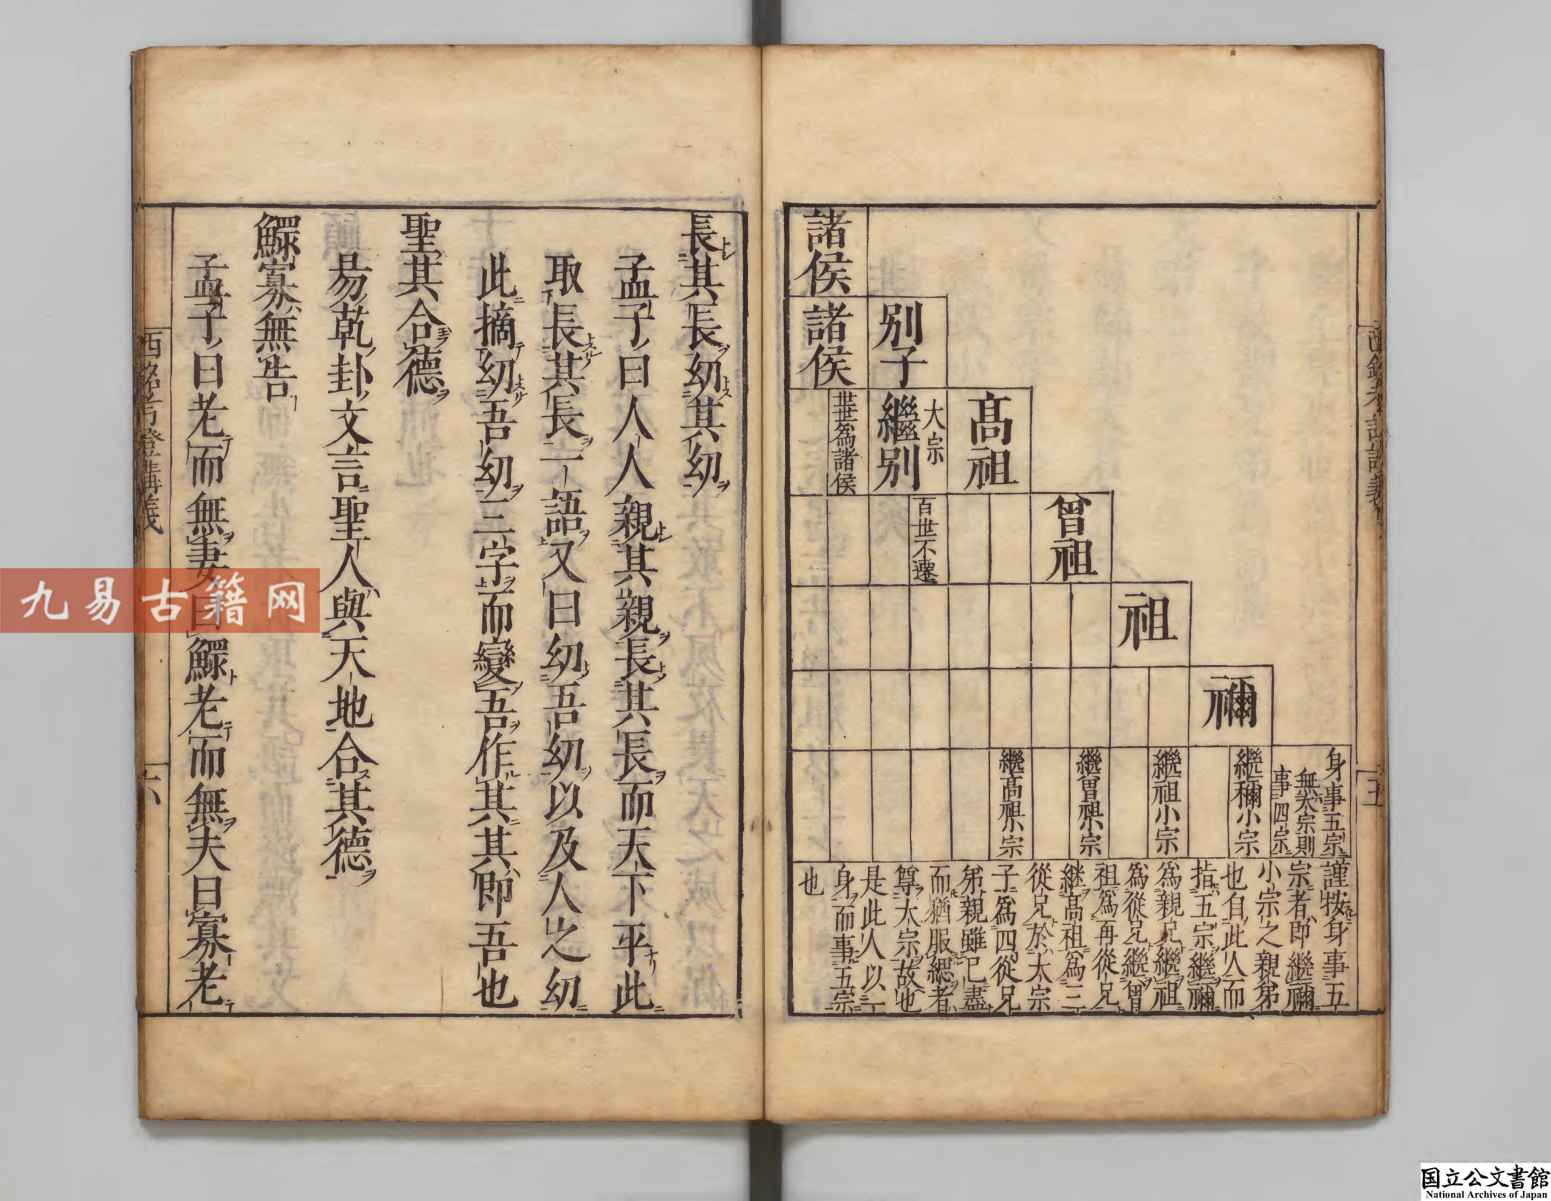 諸侯
諸侯
別子
世世為諸侯
大宗
繼別
高祖
百世不遷
曾祖
祖
禰
繼高祖小宗
繼曾祖小宗
繼祖小宗
繼禰小宗
身事五宗
無大宗則
事四宗
謹按身事五
宗者即繼禰
小宗之親弟
也自此人而
指五宗繼禰
為親兄繼祖
為從兄繼曾
祖為再從兄
継高祖為三
從兄於大宗
子為四從兄
弟親雖已盡
而猶服緦者
尊大宗故也
是此人以一
身而事五宗
也
五
長其長幼其幼
孟子曰人人親其親長其長而天下平此
取長其長一語又曰幼吾幼以及人之幼
此摘幼吾幼三字而變吾作其其即吾也
聖其合德
易乾卦文言聖人與天地合其德
鰥寡無告
孟子曰老而無妻曰鰥老而無夫曰寡老
西銘考證講義
六
九易古籍网
国立公文書館
National Archives of Japan